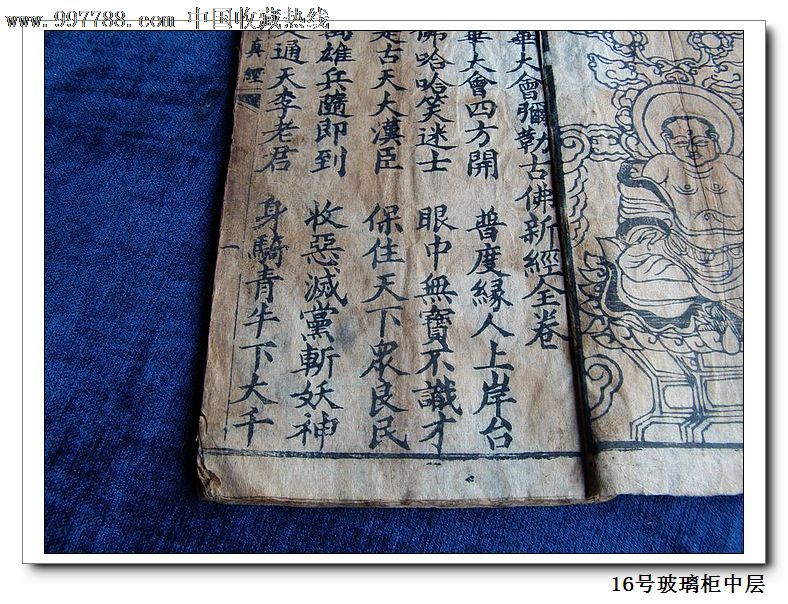 www.997788.com 中国收藏热线
華大會彌勒古佛新經全卷
華大會四方開 普度緣人上岸台
佛哈哈笑迷士 眼中無寶不識才
是古天大漢臣 保住天下眾良民
雄兵隨即到 收惡滅黨斬妖神
通天李老君 身騎青牛下大千
真經
16号玻璃柜中层